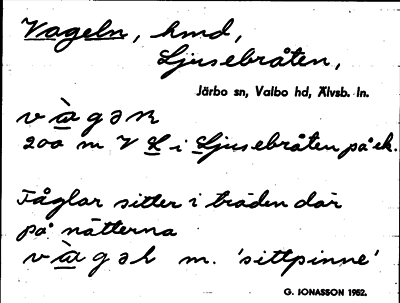 Vageln, hmd,
Ljusebråten,
Järbo sn, Valbo hd, Älvsb. ln.
v à̲ g ə n
200 m V L̲ i L̲jusebråten på ek.
Fåglar sitter i träden där
på nätterna
v à̲ g ə l m. 'sittpinne'
G. JONASSON 1982.